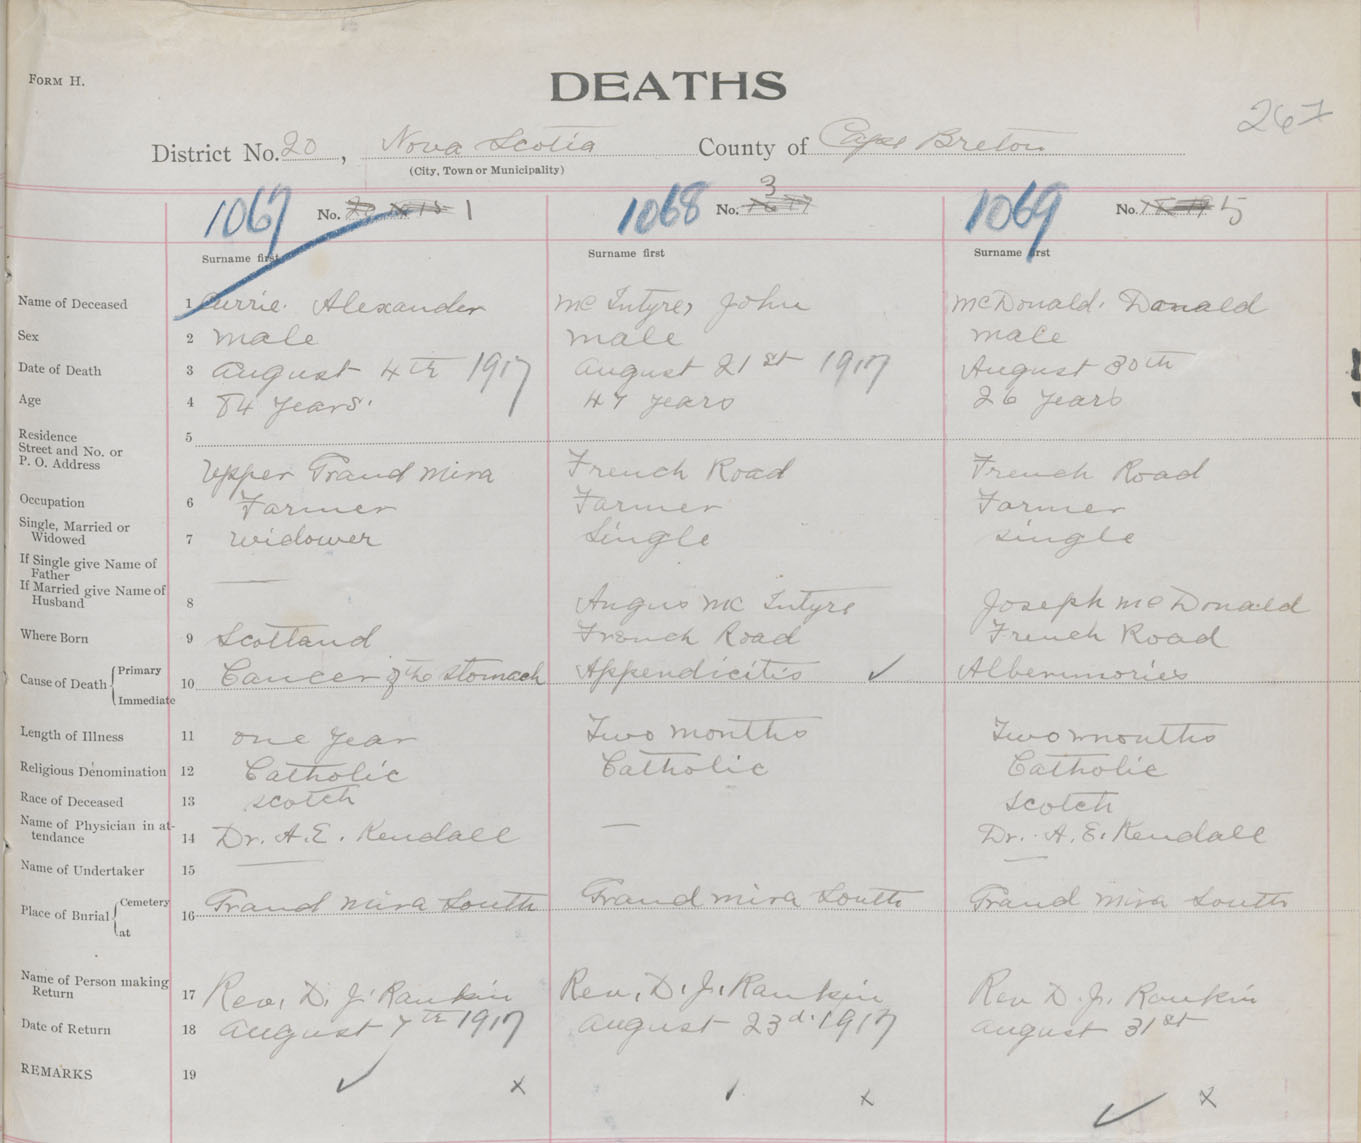 FORM H.
DEATHS
267
District No. 20, Nova Scotia County of Cape Breton
(City, Town or Municipality)
1067 No. 1 1068 No. 3 1069 No. 5
Surname first Surname first Surname first
Name of Deceased 1 Currie. Alexander McIntyre, John McDonald. Donald
Sex 2 male male male
Date of Death 3 August 4th 1917 August 21st 1917 August 30th
Age 4 84 years. 47 years 26 years
Residence Street and No. or P. O. Address 5 Upper Grand Mira French Road French Road
Occupation 6 Farmer Farmer Farmer
Single, Married or Widowed 7 widower Single single
If Single give Name of Father
If Married give Name of Husband 8 — Angus McIntyre Joseph McDonald
Where Born 9 Scotland French Road French Road
Cause of Death { Primary Immediate 10 Cancer of the Stomach Appendicitis ✓ Albenmories
Length of Illness 11 one year Two months Two months
Religious Denomination 12 Catholic Catholic Catholic
Race of Deceased 13 Scotch Scotch
Name of Physician in attendance 14 Dr. A. E. Kendall — Dr. A. E. Kendall
Name of Undertaker 15 — —
Place of Burial { Cemetery at 16 Grand Mira South Grand Mira South Grand Mira South
Name of Person making Return 17 Rev. D. J. Rankin Rev. D. J. Rankin Rev D. J. Rankin
Date of Return 18 August 7th 1917 August 23d. 1917 August 31st
REMARKS 19 ✓ x x ✓ x